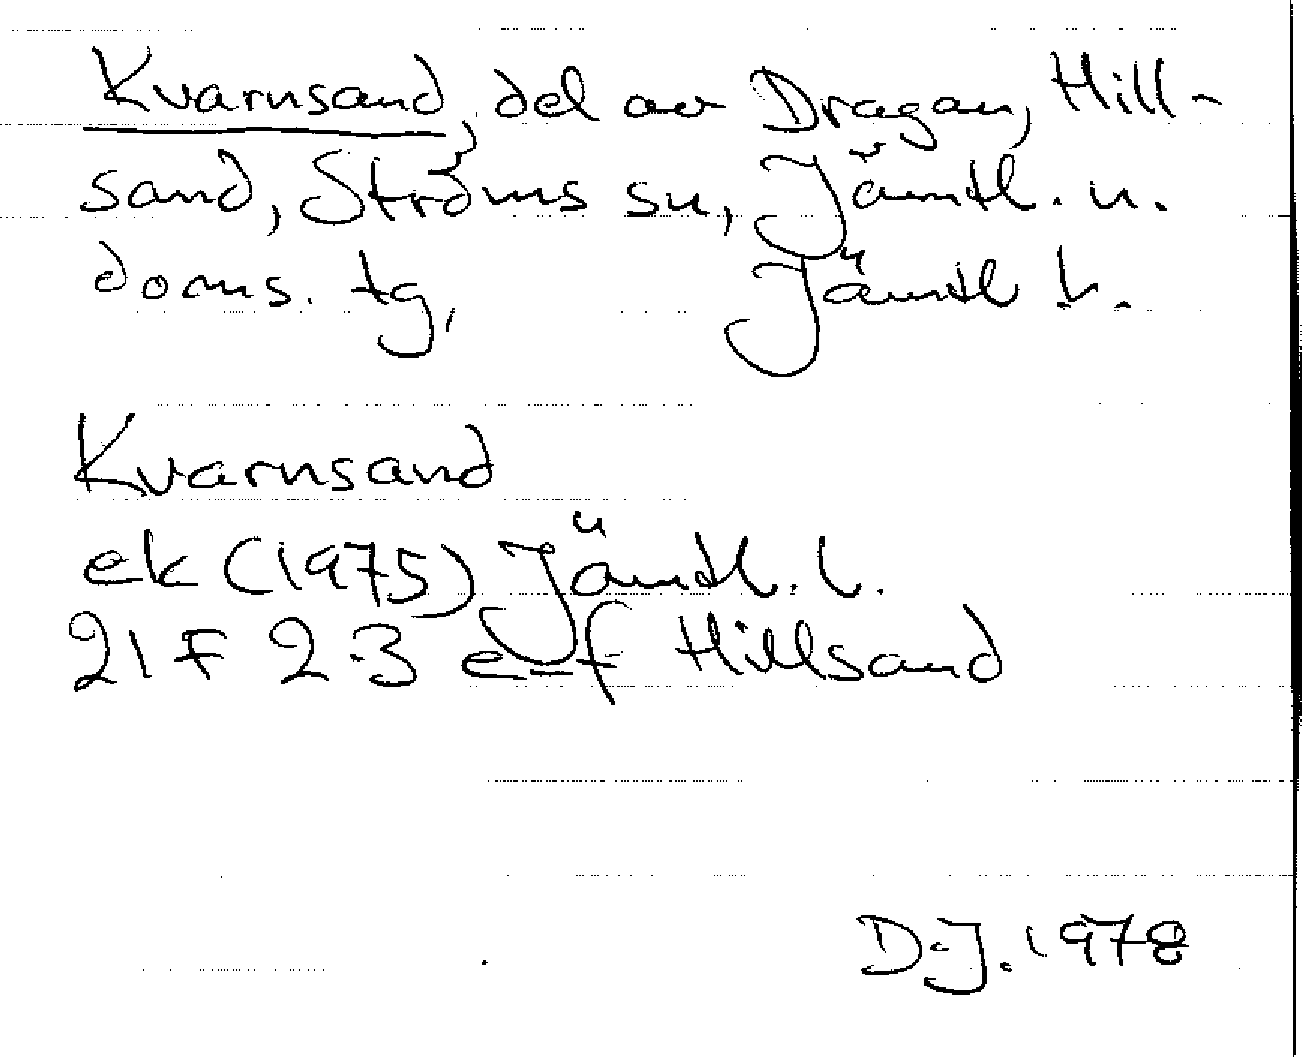 Kvarnsand, del av Dragan, Hill-
sand, Ströms sn, Jämtl. n.
doms. tg, Jämtl l.
Kvarnsand
ek (1975) Jämtl. l.
21 F 2-3 e-f Hillsand
D.J. 1978